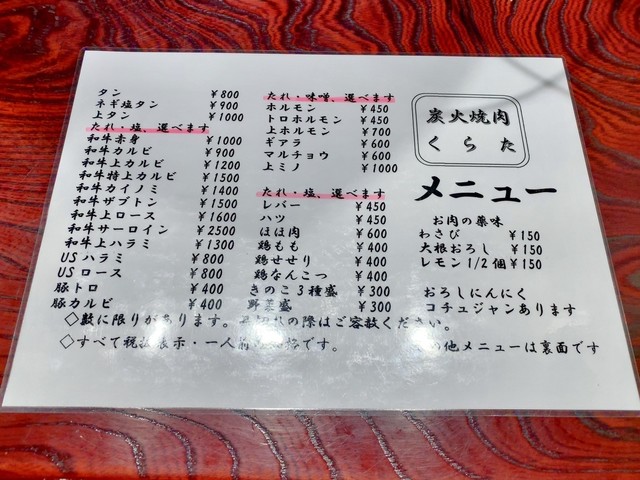 タン ¥800
ネギ塩タン ¥900
上タン ¥1000
たれ・塩、選べます
和牛赤身 ¥1000
和牛カルビ ¥900
和牛上カルビ ¥1200
和牛特上カルビ ¥1500
和牛カイノミ ¥1400
和牛ザブトン ¥1500
和牛上ロース ¥1600
和牛サーロイン ¥2500
和牛上ハラミ ¥1300
USハラミ ¥800
USロース ¥800
豚トロ ¥400
豚カルビ ¥400
たれ・味噌、選べます
ホルモン ¥450
トロホルモン ¥450
上ホルモン ¥700
ギアラ ¥600
マルチョウ ¥600
上ミノ ¥1000
たれ・塩、選べます
レバー ¥450
ハツ ¥450
ほほ肉 ¥600
鶏もも ¥400
鶏せせり ¥400
鶏なんこつ ¥400
きのこ3種盛 ¥300
野菜盛 ¥300
◇数に限りがあります。の際はご容赦ください。
◇すべて税表示・一人前格です。
炭火焼肉
くらた
メニュー
お肉の薬味
わさび ¥150
大根おろし ¥150
レモン1/2個 ¥150
おろしにんにく
コチュジャンあります
の他メニューは裏面です